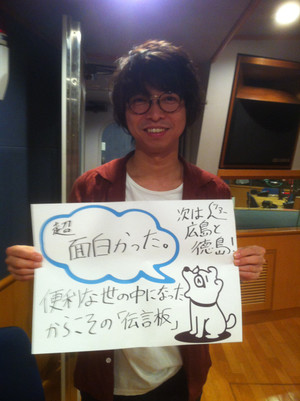 超
面白かった。
次は 7/2〜
広島と
徳島!
便利な世の中になった
からこその「伝言板」